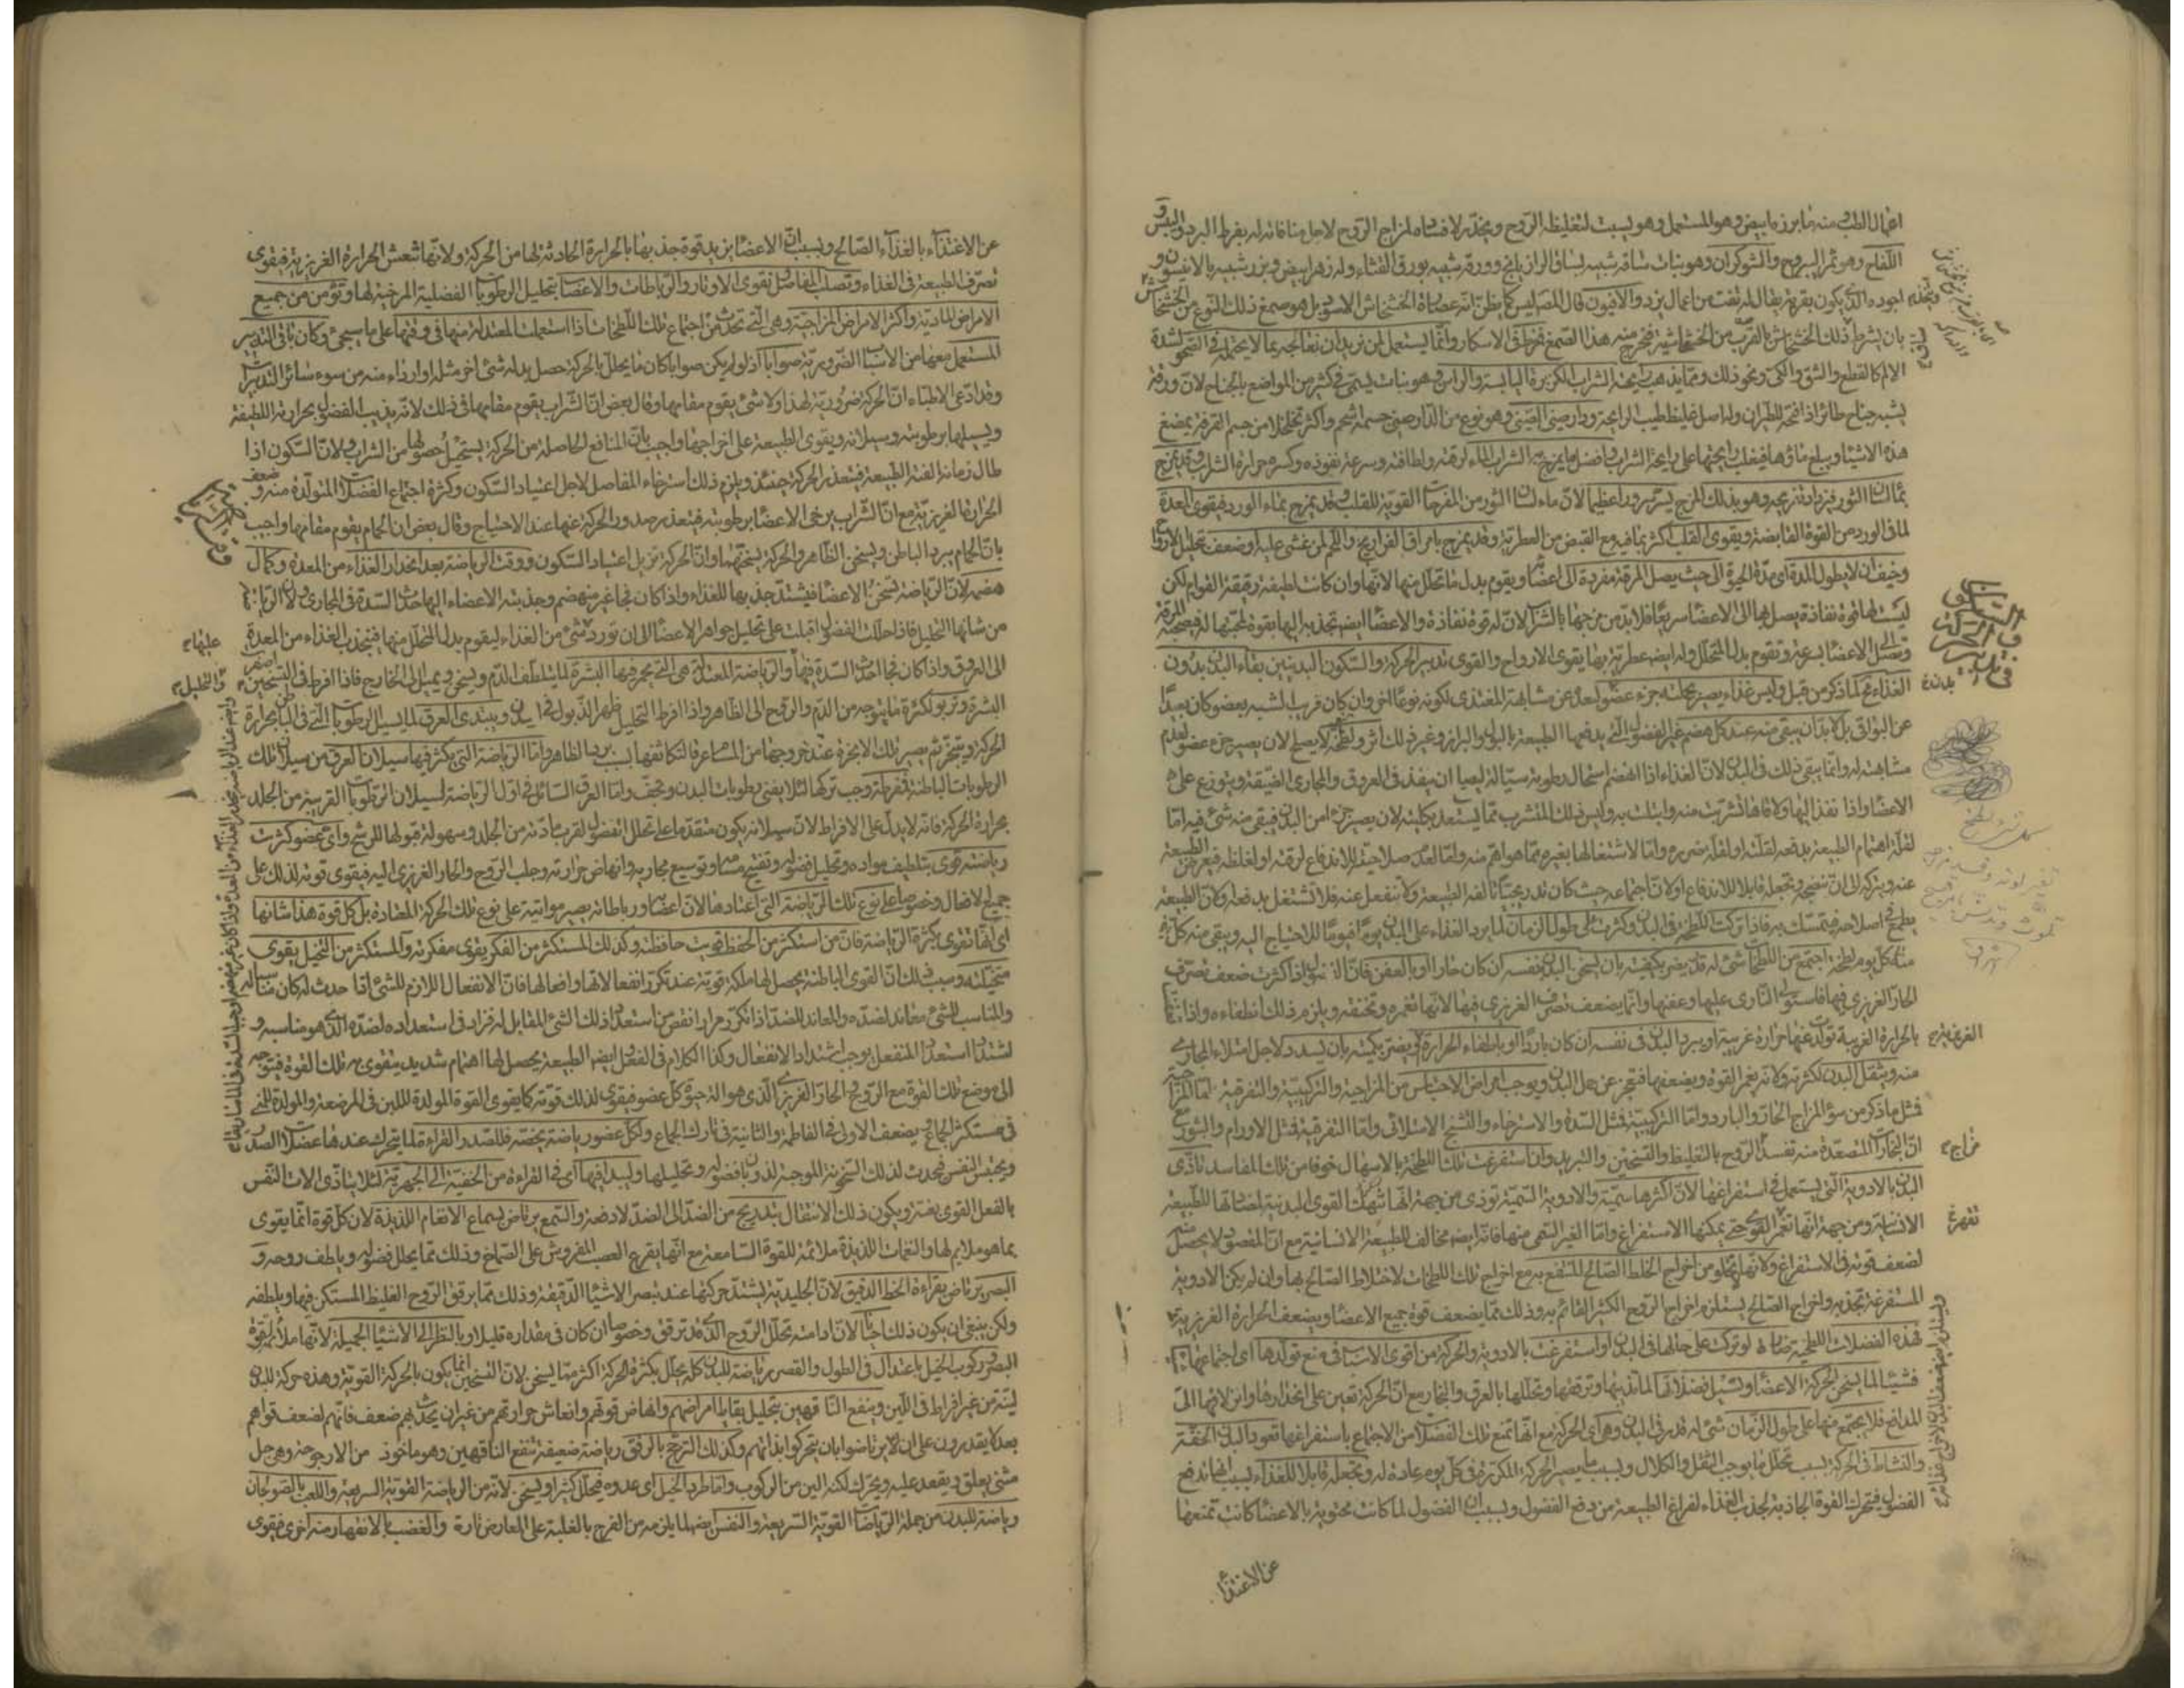 اعمال الطب منه ما بزره ابيض وهو المستعمل وهو يسبت لتغليظه الروح ويخدر لافساده لمزاج الروح لاجل منافاته له بفرط البرد واليبس و
اللفاح وهو ثمر اليبروح والشوكران وهو نبات ساقه شبيه بساق الرازيانج وورقه شبيه بورق القثاء وله زهر ابيض وبزر شبيه بالانيسون و
اجوده الذي يكون بقرية يقال له تفت من اعمال يزد والافيون قال المص ليس كما يظن انه عصارة الخشخاش الاسود بل هو صمغ ذلك النوع من الخشخاش
بان يشرط ذلك الخشخاش بالقرب من الخشخاشة فيخرج منه هذا الصمغ مفرط في الاسكار وانما يستعمل لمن نريد ان نعالجه بما لا يحتمله في الصحو لشدة
الالم كالقطع والشق والكي ونحو ذلك ومما يذهب رايحة الشراب الكزبرة اليابسة والراسن وهو نبات يسمى في كثير من المواضع بالجناح لان ورقه
يشبه جناح طائر اذا فتحه للطيران وله اصل غليظ طيب الرايحة ودارصيني الصيني وهو نوع من الدارصيني جسمه اشحم واكثر تخلخلا من جسم القرفة يمضغ
هذه الاشياء ويبلع ماؤها فيغلب رايحتها على رايحة الشراب وافضل ما يمزج به الشراب الماء لرقته ولطافته وسرعة نفوذه وكسره حرارة الشراب وقد يمزج
بماء لسان الثور فيزداد تفريحه وهو بذلك المزج يسر سرورا عظيما لان ماء لسان الثور من المفرحات القوية للقلب وقد يمزج بماء الورد فيقوى المعدة
لما في الورد من القوة القابضة ويقوى القلب اكثر بما فيه مع القبض من العطرية وقد يمزج بامراق الفراريج واللحم لمن غشى عليه او ضعف تحليل الارواح
وخيف ان لا يطول المدة اى مدة الحيوة الى حيث يصل المرقة مفردة الى اعضائه ويقوم بدل ما تحلل منها لانها وان كانت لطيفة رقيقة القوام لكن
ليست لها قوة نفاذة يصل بها الى الاعضاء سريعا فلا بد من مزجها بالشراب لان له قوة نفاذة والاعضاء ايضا تجذبه اليها بقوة لمحبتها له فيصحبه المرقة
وتصل الى الاعضاء بسرعة وتقوم بدل المتحلل وله ايضا عطرية بها يقوى الارواح والقوى تدبير الحركة والسكون البدنيين بقاء البدن بدون
الغذاء محال لما ذكر من قبل وليس غذاء يصير بجملته جزء عضو لبعده عن مشابهة المغتذى لكونه نوعا اخر وان كان قريب الشبه ببعض كان بعيدا
عن البواقى بل لا بد ان يبقى منه عند كل هضم غير الفضول التى يدفعها الطبيعة بالبول والبراز وغير ذلك اثر ولطخة لا يصلح لان يصير جزء عضو لعدم
مشابهته له وانما يبقى ذلك في البدن لان الغذاء اذا انهضم استحال رطوبة سيالة ليصلح ان ينفذ في العروق والمجارى الضيقة ويتوزع على
الاعضاء واذا نفذ اليها ولاقاها تشربت منه وابتلت به وليس ذلك المتشرب مما يستعد بكليته لان يصير جزءا من البدن فيبقى منه شئ فيه اما
لقلة اهتمام الطبيعة بدفعه لقلته او لقلة ضرره واما لاشتغالها بغيره مما هو اهم منه واما لعدم صلاحيته للاندفاع لرقته او لغلظه فيعرض الطبيعة
عنه ويتركه الى ان ينضجه وتجعله قابلا للاندفاع او لان اجتماعه حيث كان تدريجيا تالفه الطبيعة ولا تنفعل عنه فلا تشتغل بدفعه وكان الطبيعة
يطمع في اصلاحه فيتمسك به فاذا تركت اللطخة في البدن وكثرت على طول الزمان لما يرد الغذاء على البدن يوما فيوما للاحتياج اليه ويبقى منه كل
منه كل يوم لطخة اجتمع من اللطخات شئ له قدر يضر بكيفيته بان يسخن البدن بنفسه ان كان حارا او بالعفن فان الفضول اذا كثرت ضعف تصرف
الحار الغريزى فيها فاستولى النارى عليها وعفنها وانما يضعف تصرف الغريزى فيها لانها تغمره وتخنقه ويلزم ذلك انطفاءه واذا
بالحرارة الغريبة تولد عنها حرارة غريبة او يبرد البدن في نفسه ان كان باردا او باطفاء الحرارة او يضر بكميته بان يسدد لاجل امتلاء المجارى
منه ويثقل البدن لكثرته ولانه يغمر القوة ويضعفها فتعجز عن حمل البدن ويوجب امراض الاحتباس من المزاجية والتركيبية والتفرقية اما المزاجية
فمثل ما ذكر من سوء المزاج الحار والبارد واما التركيبية فمثل السدة والاسترخاء والتشنج الامتلائى واما التفرقية فمثل الاورام والبثور مع
ان البخارات المتصعدة منه تفسد الروح بالتغليظ والتسخين والتبريد وان استفرغت تلك اللطخة بالاسهال خوفا من تلك المفاسد تاذى
البدن بالادوية التى يستعمل في استفراغها لان اكثرها سمية والادوية السمية توذى من جهة انها تنهك القوى البدنية لمضادتها للطبيعة
الانسانية ومن جهة انها تقهر القوى حتى يمكنها الاستفراغ واما الغير السمى منها فانه ايضا مخالف للطبيعة الانسانية مع ان المقصود لا يحصل
لضعف قوته في الاستفراغ ولانها لا تخلو من اخراج الخلط الصالح المنتفع به مع اخراج تلك اللطخات لاختلاط الصالح بها وان لم يكن الادوية
المستفرغة تجذبه واخراج الصالح يستلزم اخراج الروح الكثير القائم به وذلك مما يضعف قوة جميع الاعضاء ويضعف الحرارة الغريزية
فهذه الفضلات اللطخية ضارة لو تركت على حالها في البدن او استفرغت بالادوية والحركة من اقوى الاسباب في منع تولدها اى اجتماعها
فشيئا لما يسخن الحركة الاعضاء ويسيل فضلاتها لما تذيبها وترققها وتحللها بالعرق والبخار مع ان الحركة تعين على انحدارها وانزلاقها الى
المدافع فلا يجتمع منها على طول الزمان شئ له قدر في البدن وهى اى الحركة مع انها تمنع تلك الفضلات من الاجتماع باستفراغها تعود البدن الخفة
والنشاط في الحركة بسبب تحلل ما يوجب الثقل والكلال وبسبب ما يصير الحركة المتكررة في كل يوم عادة له وتجعله قابلا للغذاء بسبب انها تدفع
الفضول فيتحرك القوة الجاذبة لجذب الغذاء لفراغ الطبيعة من دفع الفضول وبسبب ان الفضول لما كانت محتوية بالاعضاء كانت تمنعها
عن الاغتذاء
في تدبير الحركة والسكون البدنيين
بدن
الغريزية
مزاج
تقهر
عن الاغتذاء بالغذاء الصالح وبسبب ان الاعضاء يزيد قوة جذبها بالحرارة الحادثة لها من الحركة ولانها تنعش الحرارة الغريزية فيقوى
تصرف الطبيعة في الغذاء وتصلب المفاصل وتقوى الاوتار والرباطات والاعصاب بتحليل الرطوبات الفضلية المرخية لها وتؤمن من جميع
الامراض المادية واكثر الامراض المزاجية وهى التى تحدث من اجتماع تلك اللطخات اذا استعملت المعتدلة منها في وقتها على ما سيجئ وكان باقى التدبير
المستعمل معها من الاسباب الضرورية صوابا اذ لو لم يكن صوابا كان ما يحلل بالحركة حصل بدله شئ اخر مثله او ارداء منه من سوء سائر التدبير
وقد ادعى الاطباء ان الحركة ضرورية لهذا ولا شئ يقوم مقامها وقال بعض ان الشراب يقوم مقامها في ذلك لانه يذيب الفضول بحرارته اللطيفة
ويسيلها برطوبته وسيلانه ويقوى الطبيعة على اخراجها واجيب بان المنافع الحاصلة من الحركة يستحيل حصولها من الشراب ولان السكون اذا
طال زمانه الفته الطبيعة فيتعذر الحركة حينئذ ويلزم ذلك استرخاء المفاصل لاجل اعتياد السكون وكثرة اجتماع الفضلات المتولدة منه و ضعف
الحرارة الغريزية مع ان الشراب يرخى الاعضاء برطوبته فيتعذر صدور الحركة عنها عند الاحتياج وقال بعض ان الحمام يقوم مقامها واجيب
بان الحمام يبرد الباطن ويسخن الظاهر والحركة يسخنهما وان الحركة تزيل اعتياد السكون ووقت الرياضة بعد انحدار الغذاء من المعدة وكمال
هضمه لان الرياضة تسخن الاعضاء فيشتد جذبها للغذاء واذا كان فجا غير منهضم وجذبته الاعضاء اليها حدثت السدة في المجارى ولان الرياضة
من شانها التحليل فاذا حللت الفضول اقبلت على تحليل جواهر الاعضاء الى ان تورد شئ من الغذاء ليقوم بدل المتحلل منها فينجذب الغذاء من المعدة
الى العروق واذا كان فجا احدث السدة فيها والرياضة المعتدلة هى التى يحمر فيها البشرة لما يتلطف الدم ويسخن ويميل الى الخارج فاذا افرط في التسخين اصفر
البشرة وتربو لكثرة ما يتوجه من الدم والروح الى الظاهر واذا افرط التحليل ظهر الذبول في البدن ويبتدى العرق لما يسيل الرطوبات التى في الباطن بحرارة
الحركة ويتبخر ثم يصير تلك الابخرة عند خروجها من المسام عرقا لتكاثفها بسبب برد الظاهر واما الرياضة التى يكثر فيها سيلان العرق من سيلان تلك
الرطوبات الباطنة فمفرطة وجب تركها لئلا يفنى رطوبات البدن ويجف واما العرق السائل في اول الرياضة لسيلان الرطوبات القريبة من الجلد
بحرارة الحركة فانه لا يدل على الافراط لان سيلانه يكون متقدما على تحلل الفضول لقرب مادته من الجلد وسهولة قبولها للرشح واى عضو كثرت
رياضته قوى بتلطيف مواده وتحليل فضوله وتفتيح مسامه وتوسيع مجاريه وانهاض حرارته وجلب الروح والحار الغريزى اليه فيقوى قوته لذلك على
جميع الافعال وخصوصا على نوع تلك الرياضة التى اعتادها لان اعضاءه ورباطاته يصير مواتية على نوع تلك الحركة المعتادة بل كل قوة هذا شانها
اى انها تقوى بكثرة الرياضة فان من استكثر من الحفظ قويت حافظته وكذلك المستكثر من الفكر يقوى مفكرته والمستكثر من التخيل يقوى
متخيلته وسبب ذلك ان القوى الباطنة يحصل لها ملكة قوية عند تكرر انفعالاتها وافعالها فان الانفعال اللازم للشئ اذا حدث له كان مناسبا له
والمناسب للشئ معاند لضده والمعاند للضد اذا تكرر مرارا انقص من استعداد ذلك الشئ المقابل له فزاد في استعداده لضده الذى هو مناسبه و
اشتداد استعداد المنفعل يوجب اشتداد الانفعال وكذا الكلام في الفعل ايضا الطبيعة يحصل لها اهتمام شديد بتقوى به تلك القوة فيتوجه
الى موضع تلك القوة مع الروح الحار الغريزى الذى هو الة حيوة كل عضو فيقوى لذلك قوته كما يقوى القوة المولدة للبن في المرضعة والمولدة للمنى
في مستكثر الجماع ويضعف الاولى في الفاطمة والثانية في تارك الجماع ولكل عضو رياضة يخصه فللصدر القراءة لما يتحرك عندها عضلات الصدر
ويحتبس النفس فيحدث لذلك السخونة الموجبة لذوبان فضوله وتحليلها وليبدا فيها اى في القراءة من الخفية الى الجهرية لئلا يتاذى الات النفس
بالفعل القوى بغتة ويكون ذلك الانتقال بتدريج من الضد الى الضد لا دفعة والسمع يرتاض بسماع الانغام اللذيذة لان كل قوة انما يقوى
بما هو ملايم لها والنغمات اللذيذة ملائمة للقوة السامعة مع انها يقرع العصب المفروش على الصماخ وذلك مما يحلل فضوله ويلطف روحه و
البصر يرتاض بقراءة الخط الدقيق لان الجليدية يشتد حركتها عند تبصر الاشياء الدقيقة وذلك مما يرقق الروح الغليظ المستكن فيها ويلطفه
ولكن ينبغى ان يكون ذلك احيانا لان ادامته تحلل الروح الذى قد ترقق وخصوصا ان كان في مقداره قليلا وبالنظر الى الاشياء الجميلة لانها ملائمة لقوة
البصر وركوب الخيل باعتدال في الطول والقصر رياضة للبدن كله يحلل بكثرة الحركة اكثر مما يسخن لان التسخين انما يكون بالحركة القوية وهذه حركة للبدن
لينة من غير افراط في اللين وينفع الناقهين بتحليل بقايا امراضهم وانهاض قوتهم وانعاش حرارتهم من غير ان يحدث بهم ضعف فانهم لضعف قواهم
بعد لا يقدرون على ان لا يرتاضوا بان يتحركوا بذاتهم وكذلك الترجح بالرفق رياضة ضعيفة تنفع الناقهين وهو ماخوذ من الارجوحة وهى حبل
مثنى يعلق ويقعد عليه ويحرك لكنه الين من الركوب واما طرد الخيل اى عدوه فيحلل كثيرا ويسخن لانه من الرياضة القوية السريعة واللعب بالصولجان
رياضة للبدن من جملة الرياضات القوية السريعة والنفس ايضا لما يلزمه من الفرح بالغلبة على المعارض تارة والغضب بالانقهار منه اخرى فيقوى
عليها
والتحليل